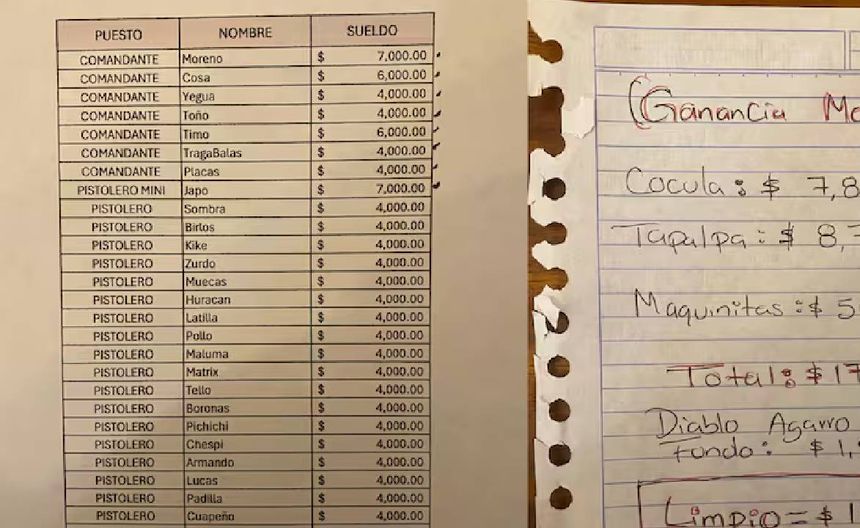 PUESTO NOMBRE SUELDO
COMANDANTE Moreno $ 7,000.00
COMANDANTE Cosa $ 6,000.00
COMANDANTE Yegua $ 4,000.00
COMANDANTE Toño $ 4,000.00
COMANDANTE Timo $ 6,000.00
COMANDANTE TragaBalas $ 4,000.00
COMANDANTE Placas $ 4,000.00
PISTOLERO MINI Japo $ 7,000.00
PISTOLERO Sombra $ 4,000.00
PISTOLERO Birlos $ 4,000.00
PISTOLERO Kike $ 4,000.00
PISTOLERO Zurdo $ 4,000.00
PISTOLERO Muecas $ 4,000.00
PISTOLERO Huracan $ 4,000.00
PISTOLERO Latilla $ 4,000.00
PISTOLERO Pollo $ 4,000.00
PISTOLERO Maluma $ 4,000.00
PISTOLERO Matrix $ 4,000.00
PISTOLERO Tello $ 4,000.00
PISTOLERO Boronas $ 4,000.00
PISTOLERO Pichichi $ 4,000.00
PISTOLERO Chespi $ 4,000.00
PISTOLERO Armando $ 4,000.00
PISTOLERO Lucas $ 4,000.00
PISTOLERO Padilla $ 4,000.00
PISTOLERO Cuapeño $ 4,000.00
(Ganancia Ma
Cocula: $ 7,8
Tapalpa: $ 8,7
Maquinitas: $ 5
Total: $ 17
Diablo Agarro
Fondo: $ 1,
Limpio = $ 1